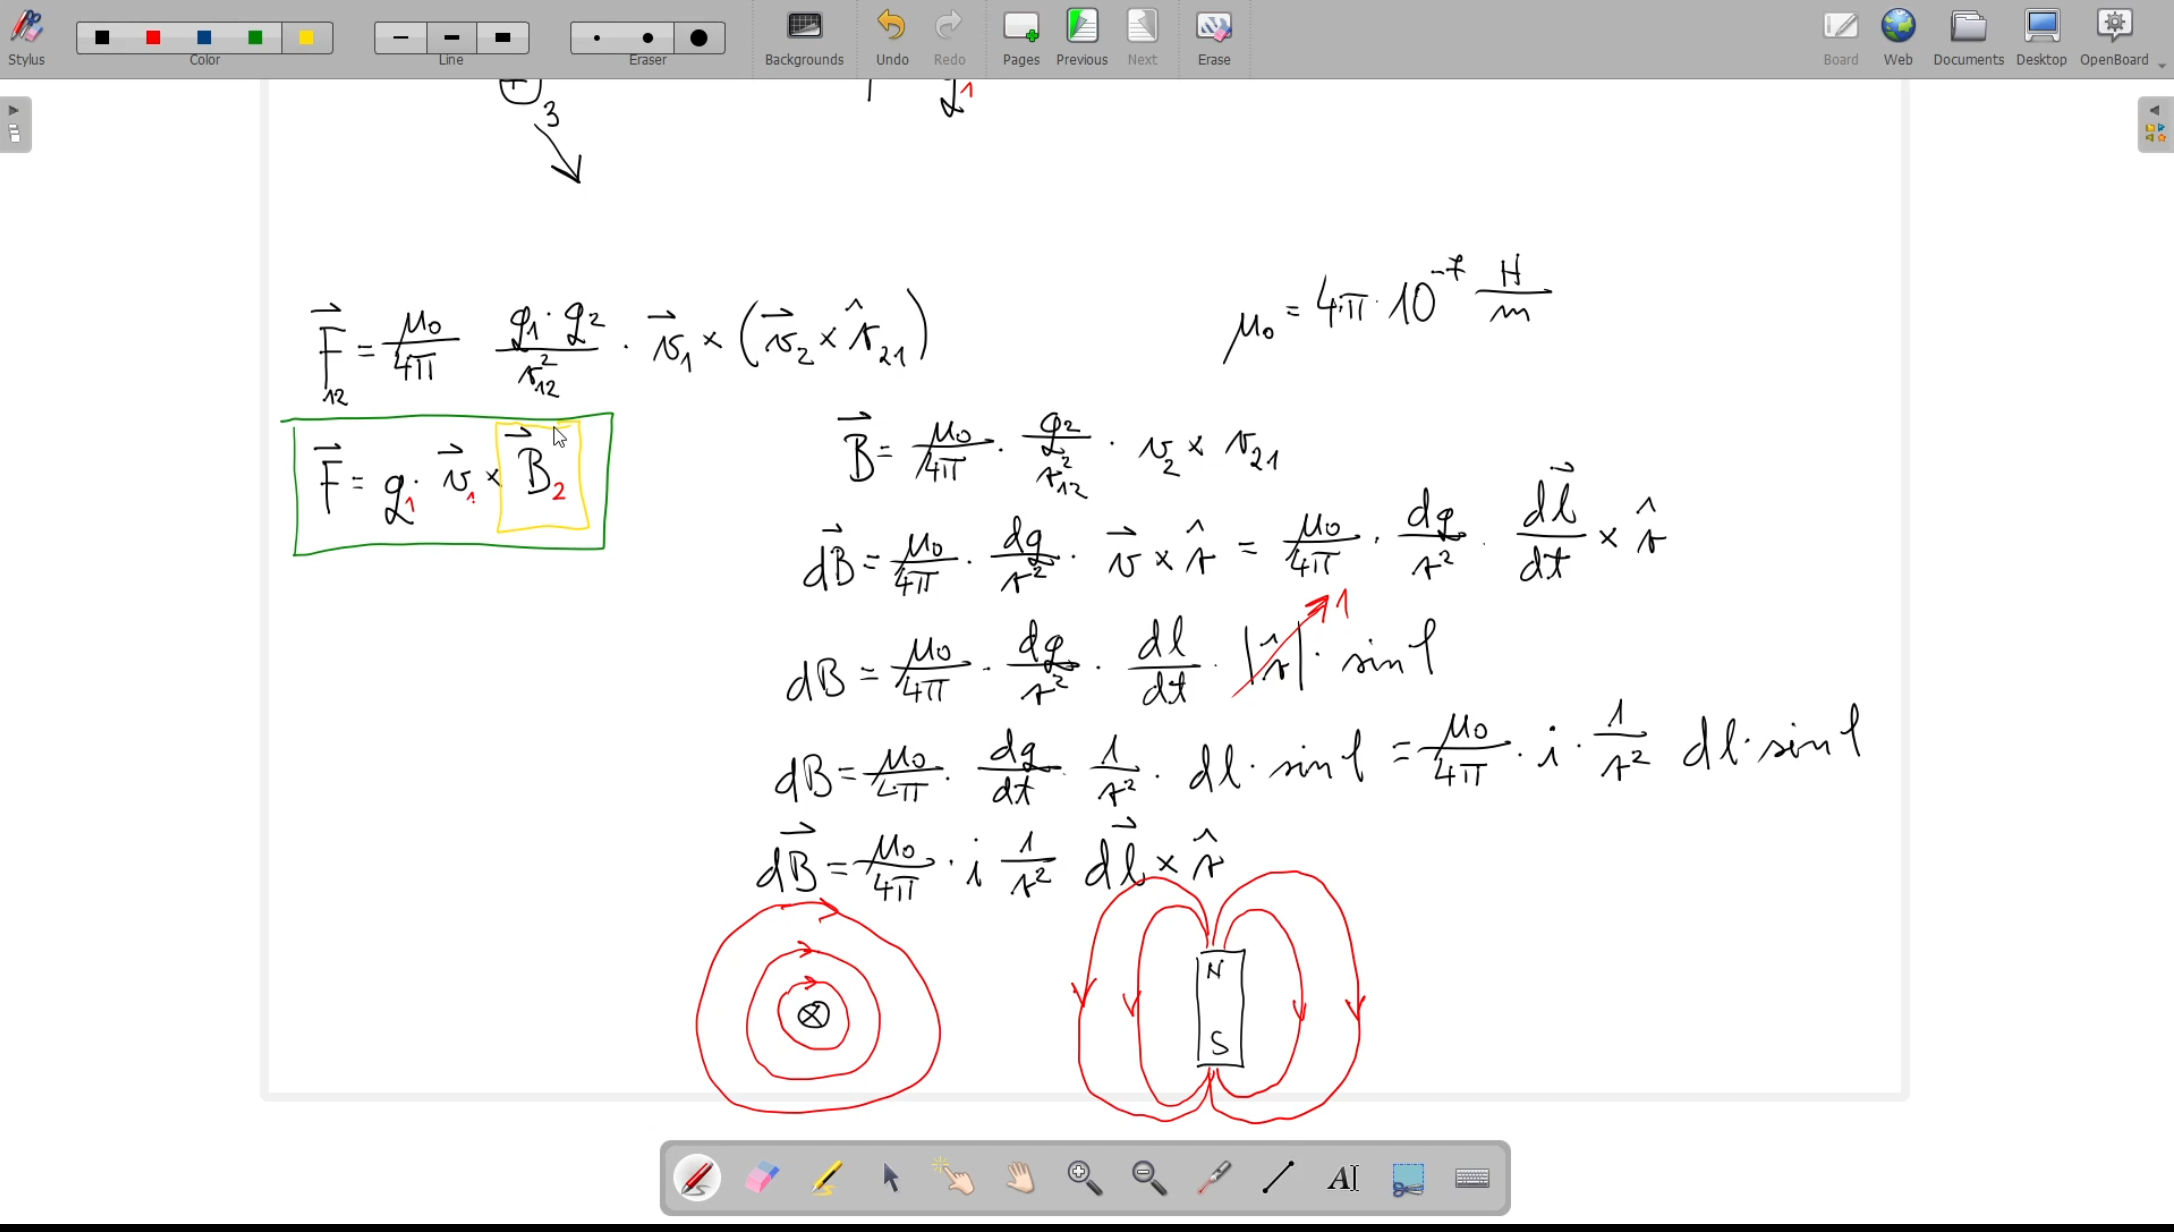 Stylus Color Line Eraser Backgrounds Undo Redo Pages Previous Next Erase Board Web Documents Desktop OpenBoard
+ 3
q1
F⃗12 = μ0/4π q1·q2/r12² · v⃗1 × (v⃗2 × r̂21)
μ0 = 4π·10⁻⁷ H/m
F⃗ = q1· v⃗1 × B⃗2
B⃗ = μ0/4π · q2/r12² · v2 × r21
dB⃗ = μ0/4π · dq/r² · v⃗ × r̂ = μ0/4π · dq/r² · dl⃗/dt × r̂
dB = μ0/4π · dq/r² · dl/dt · |r̂| · sin l
1
dB = μ0/4π · dq/dt · 1/r² · dl · sin l = μ0/4π · i · 1/r² dl · sin l
dB⃗ = μ0/4π · i 1/r² dl⃗ × r̂
N
S
AI